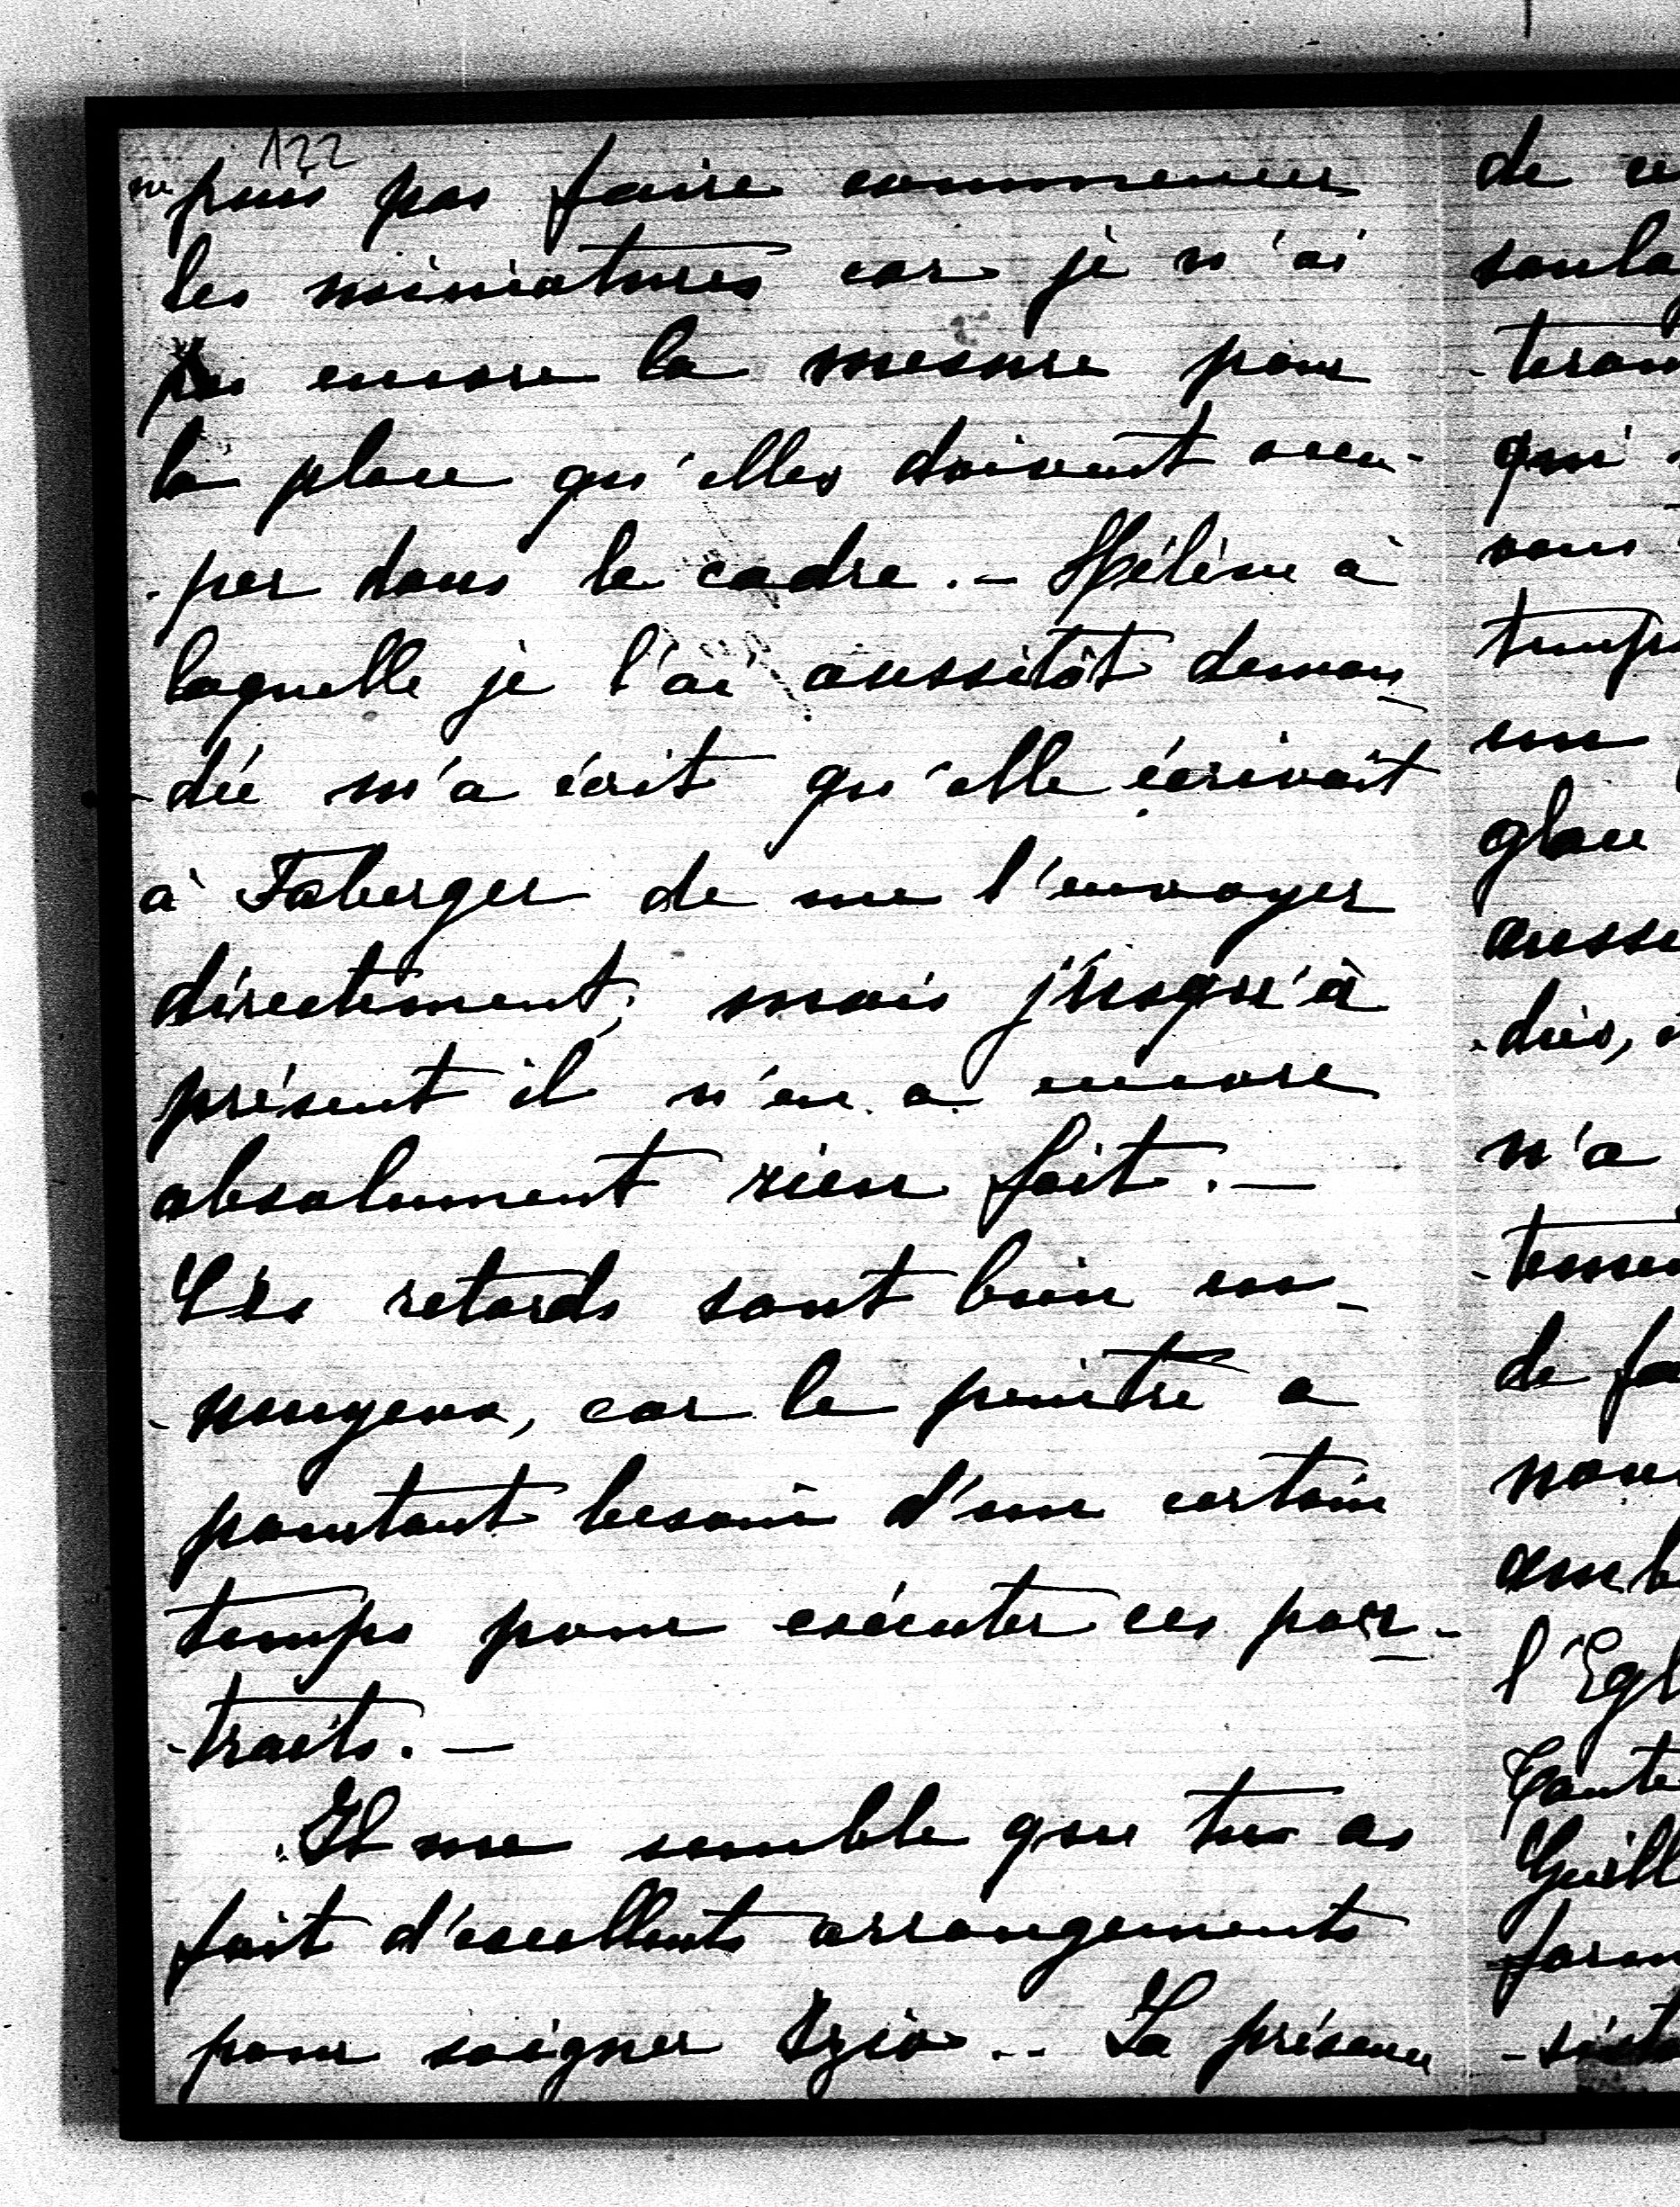 122
ne puis pas faire commencer
les miniatures car je n'ai
pas encore la mesure pour
la place qu'elles doivent occu-
-per dans le cadre. — Hélène à
laquelle je l'ai aussitôt deman
-dée m'a écrit qu'elle écrivait
à Faberger de me l'envoyer
directement, mais jusqu'à
présent il n'en a encore
absolument rien fait. —
Ces retards sont bien en-
-nuyeux, car le peintre a
pourtant besoin d'un certain
temps pour exécuter ces por-
-traits. —
Il me semble que tu as
fait d'excellents arrangements
pour soigner Izia.. La présence
de
soula
-teron
qui
vous
temps
un
glace
aussi
-dies,
n'a
-temen
de fa
nous
amb
l'Egl
Tante
Guill
form